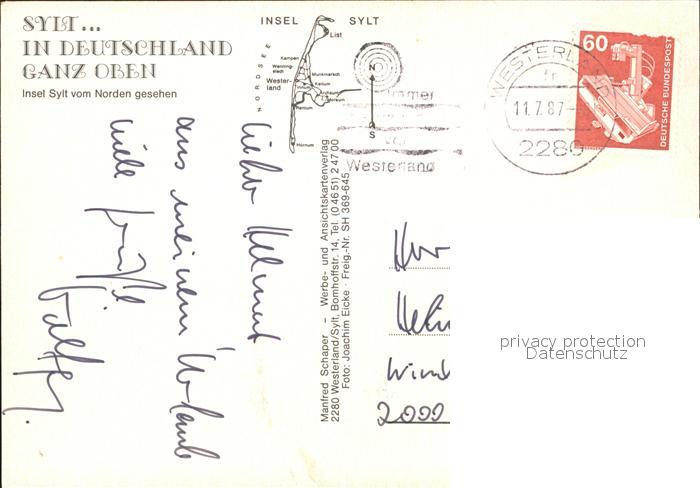 SYLT...
IN DEUTSCHLAND
GANZ OBEN
Insel Sylt vom Norden gesehen
INSEL SYLT
NORDSEE
List
Kampen
Wenningstedt
Westerland
Munkmarsch
Keitum
Archsum
Morsum
Rantum
Hörnum
N
S
Westerland
WESTERLAND
fr
11.7.87
2280
60
DEUTSCHE BUNDESPOST
Lieber Helmut
aus meinem Urlaub
viele Grüße
Manfred Schaper – Werbe- und Ansichtskartenverlag
2280 Westerland/Sylt, Bomhoffstr. 14, Tel. (04651) 24700
Foto: Joachim Eicke · Freig.-Nr. SH 369-645
Herr
Helm
2000
privacy protection
Datenschutz